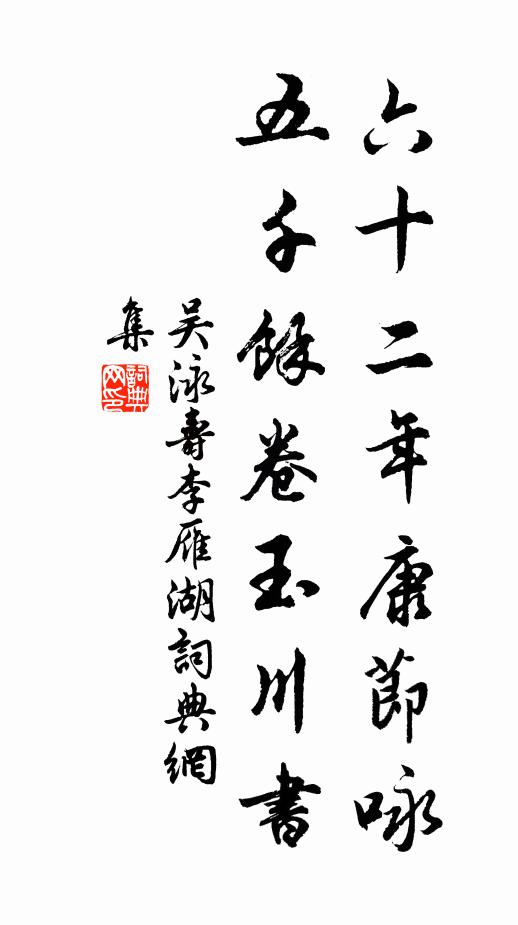 六十二年康節咏
五千餘卷玉川書
吴泳壽李雁湖詞典網
集
詞典
网印